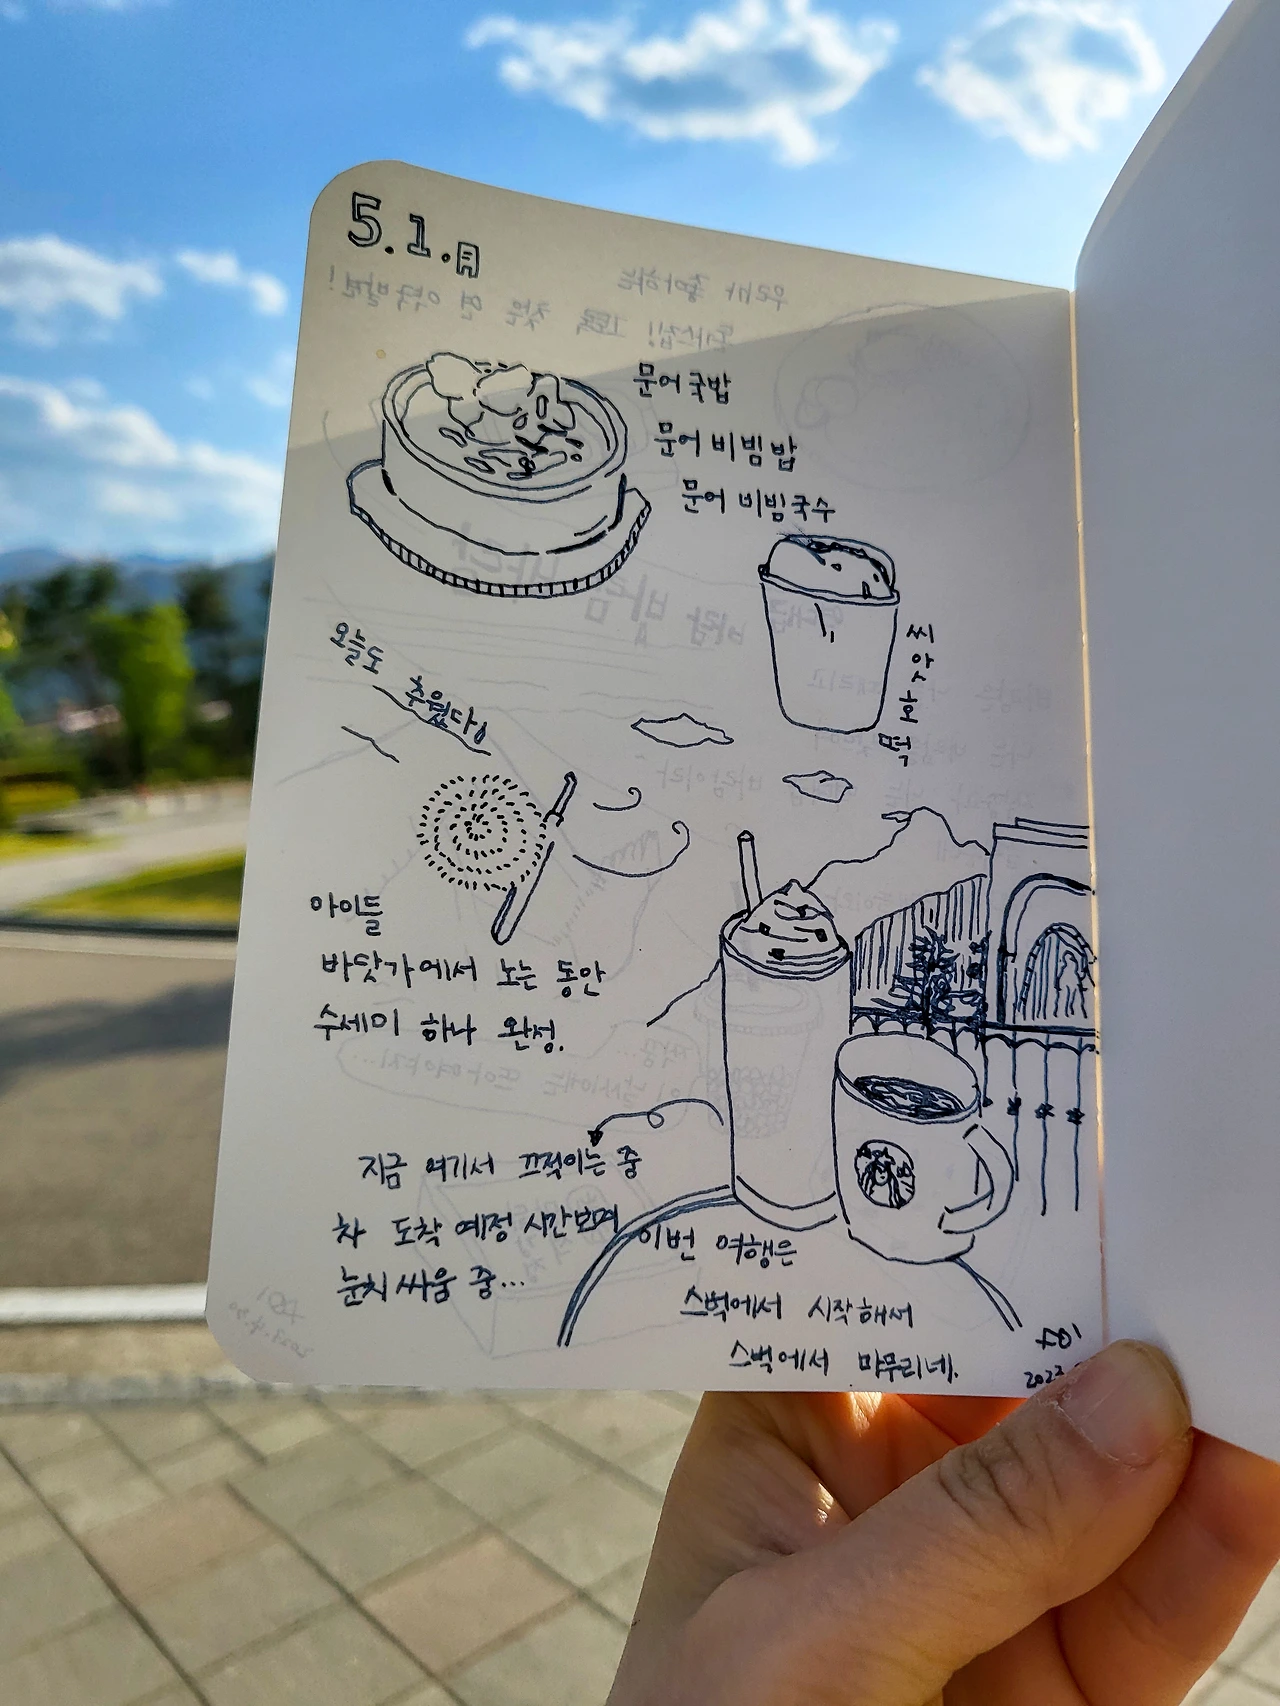 5.1.月
문어국밥
문어 비빔밥
문어 비빔국수
씨앗호떡
오늘도 추웠다.
아이들
바닷가에서 노는 동안
수세미 하나 완성.
지금 여기서 끄적이는 중
차 도착 예정 시간보며
눈치싸움 중...
이번 여행은
스벅에서 시작해서
스벅에서 마무리네.